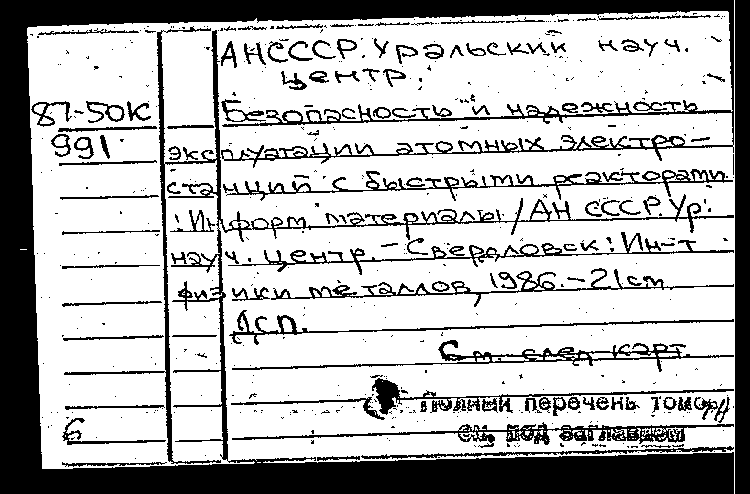 АНСССР. Уральский науч.
центр.
87-50К Безопасность и надежность
991 эксплуатации атомных электро-
станций с быстрыми реакторами
: Информ. материалы / АН СССР. Ур.
науч. центр. - Свердловск : Ин-т
физики металлов, 1986. - 21 см
ДСП.
См. след карт.
Полный перечень томов
см. под заглавием
Б